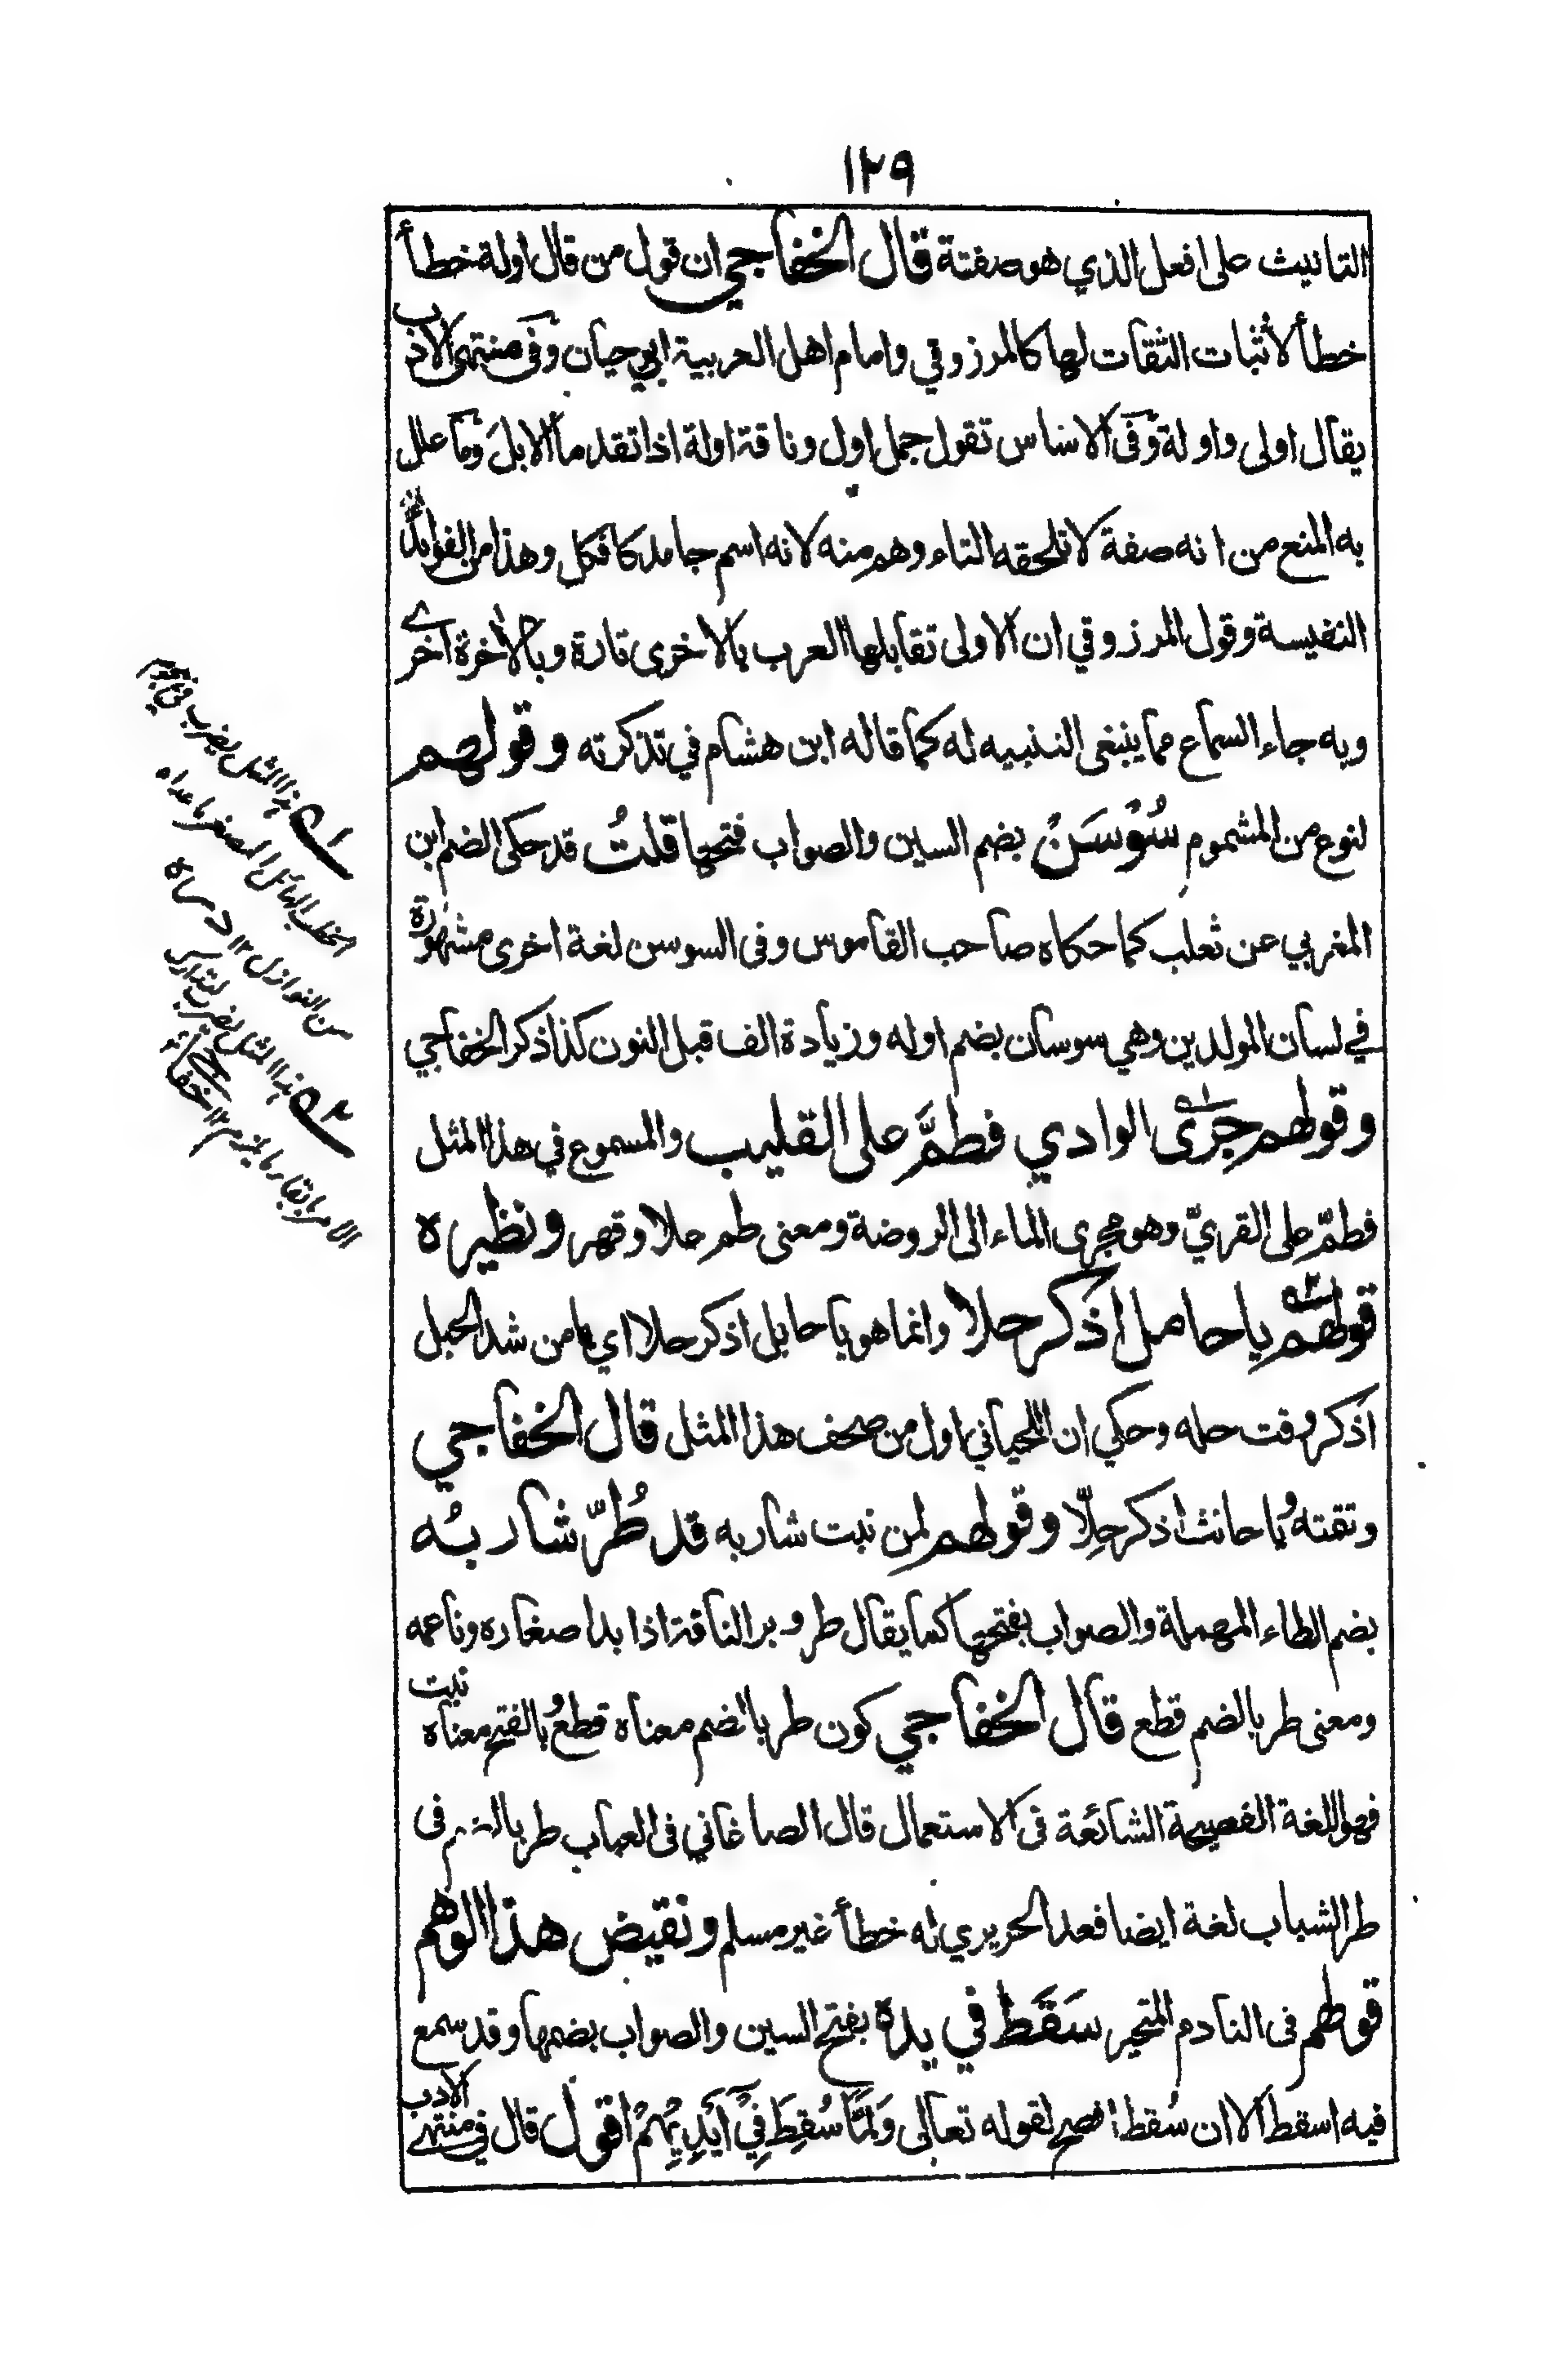 ١٢٩
التانيث على افعل الذي هو صفتة قال الخفاجي ان قول من قال اولة خطأ
خطأ لأثبات الثقات لها كالمرزوقي وامام اهل العربية ابي حيان وفى منتهى الارب
يقال اولى واولة وفى الاساس تقول جمل اول وناقة اولة اذا تقدما الابل وما علل
به المنع من انه صفة لا تلحقه التاء وهم منه لانه اسم جامد كافكل وهذا من الفوايد
النفيسة وقول المرزوقي ان الاولى تقابلها العرب بالاخرى تارة وبالأخرة اخرى
وبه جاء السماع مما ينبغى التنبيه له كما قاله ابن هشام في تذكرته وقولهم
لنوع من المشموم سُوْسَنْ بضم السين والصواب فتحها قلتُ قد حكى الضم ابن
المغربي عن ثعلب كما حكاه صاحب القاموس وفى السوسن لغة اخرى مشهورة
في لسان المولدين وهي سوسان بضم اوله وزيادة الف قبل النون كذا ذكر الخفاجي
وقولهم جرى الوادي فطمَّ على القليب والمسموع في هذا المثل
فطمّ على القريّ وهو مجرى الماء الى الروضة ومعنى طم علا وقهر ونظيره
قولهم يا حامل اذكر حلا وانما هو يا حابل اذكر حلا اي يا من شد الحبل
اذكر وقت حله وحكي ان اللحياني اول من صحف هذا المثل قال الخفاجي
وتقته يا حانث اذكر حِلّا وقولهم لمن نبت شاربه قد طُرّ شاربُه
بضم الطاء المهملة والصواب بفتحها كما يقال طر وبر الناقة اذا بدا صغاره وناعمه
ومعنى طر بالضم قطع قال الخفاجي كون طر بالضم معناه قطعُ بالفتح معناه نبت
فهو اللغة الفصيحة الشائعة فى الاستعمال قال الصاغاني فى العباب طر بالضم فى
طر الشباب لغة ايضا فعد الحريري له خطأ غير مسلم ونقيض هذا الوهم
قولهم فى النادم المتحير سَقَطَ في يده بفتح السين والصواب بضمها وقد سمع
فيه اسقط الا ان سُقط افصح لقوله تعالى وَلَمَّا سُقِطَ فِيْ أَيْدِيْهِمْ اقول قال في منتهى الادب
١ هذا المثل يضرب في هجوم
الخطب الهائل المصغر ما عداه
من النوازل ١٢
٢ هذا المثل يضرب لتدارك
الامر بابقاء ما يلزم ١٢ خفاجي